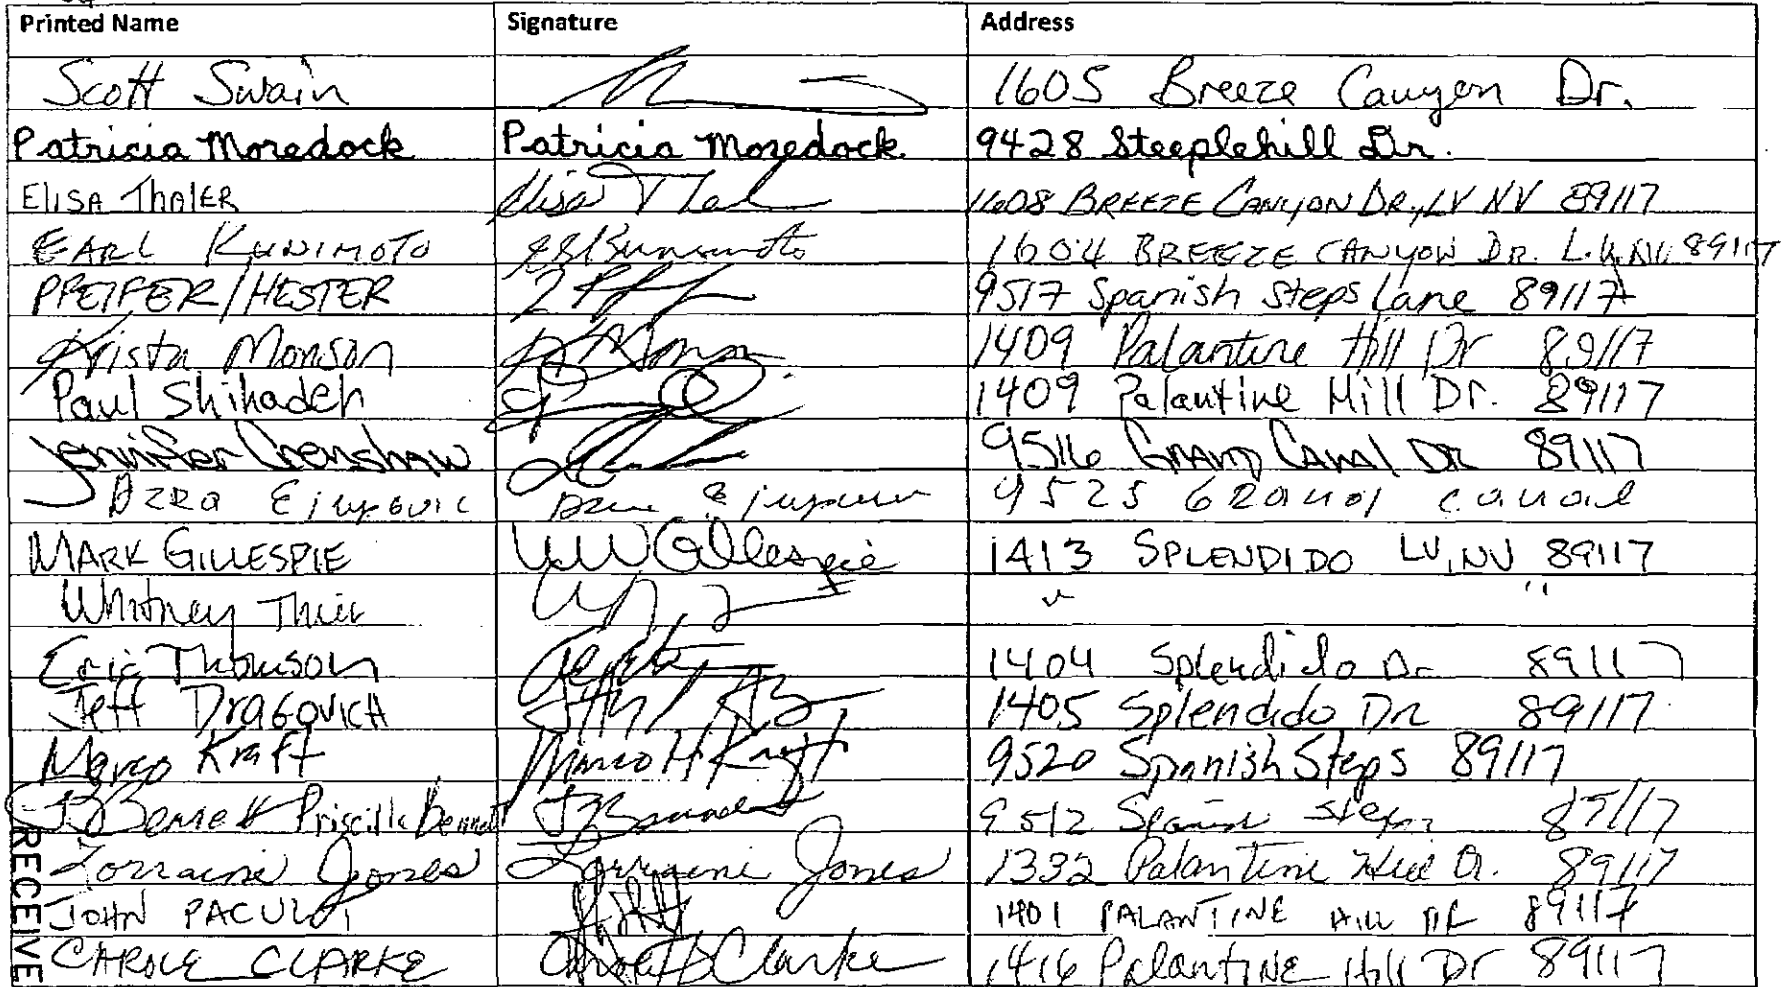 Printed Name Signature Address
Scott Swain 1605 Breeze Canyon Dr.
Patricia Moredock Patricia Moredock 9428 Steeplehill Dr.
Elisa Thaler Elisa 1608 BREEZE CANYON DR., LV NV 89117
EARL KUNIMOTO 1604 BREEZE CANYON DR. L.V. NV. 89117
PFEIFER/HESTER 9517 Spanish Steps Lane 89117
Krista Monson K Monson 1409 Palantine Hill Dr 89117
Paul Shihadeh 1409 Palantine Hill Dr. 89117
Jennifer Crenshaw 9516 GRAND CANAL DR 89117
9525
MARK GILLESPIE Gillespie 1413 SPLENDIDO LV, NV 89117
Whitney "
Eric Thomson 1404 Splendido Dr 89117
Jeff Dragovich 1405 Splendido Dr 89117
Marco Kraft Marco H Kraft 9520 Spanish Steps 89117
Bennett Priscilla Bennett 9512 Spanish Steps 89117
Lorraine Jones Lorraine Jones 1332 Palantine Hill Dr. 89117
JOHN 1401 PALANTINE HILL DR 89117
CAROLE CLARKE Carole B Clarke 1416 Palantine Hill Dr 89117
RECEIVE